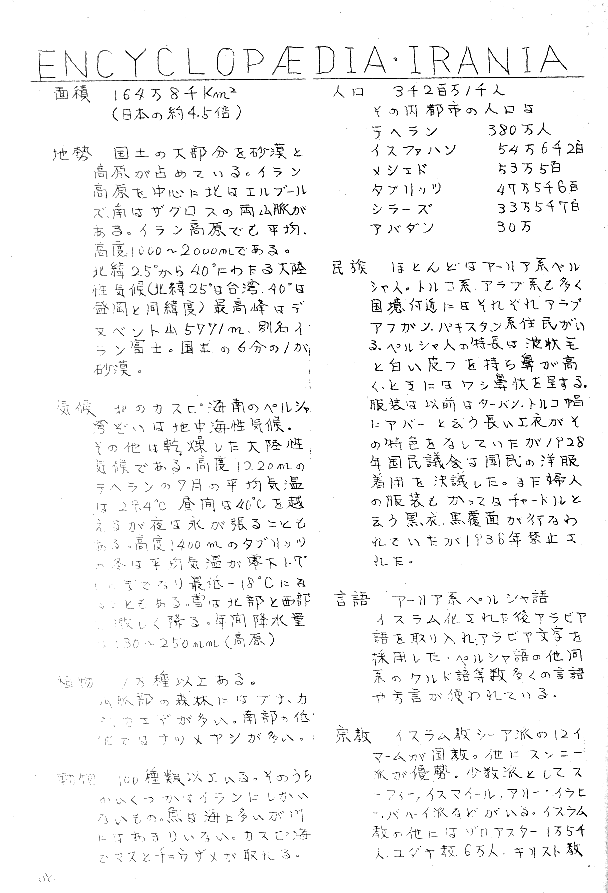 ENCYCLOPÆDIA・IRANIA
面積 164万8千Km²
(日本の約4.5倍)
地勢 国土の大部分を砂漠と
高原が占めている。イラン
高原を中心に北はエルブール
ズ、南はザグロスの両山脈が
ある。イラン高原でも平均、
高度1000〜2000mである。
北緯25°から40°にわたる大陸
性気候(北緯25°は台湾、40°は
盛岡と同緯度) 最高峰はデ
マベント山5771m、別名イ
ラン富士。国土の6分の1が
砂漠。
気候 北のカスピ海南のペルシャ
湾ぞいは地中海性気候.
その他は乾燥した大陸性
気候である。高度1220mの
テヘランの7月の平均気温
は29.4℃ 昼間は40℃を越
えるが夜は氷が張ることも
ある。高度1400mのタブリッツ
の冬は平均気温が零下1.7℃
最低-18℃にな
ることもある。雪は北部と西部
に激しく降る。年間降水量
は30〜250mm(高原)
植物 1万種以上ある。
山脈部の森林にはブナ、カ
が多い。南部の低
地ではナツメヤシが多い。
動物 100種類以上いる。そのうち
のいくつかはイランにしかい
ないもの。魚は海に多いが川
にはあまりいない。カスピ海
でマスとチョウザメが取れる。
人口 342百万1千人
その内都市の人口は
テヘラン 380万人
イスファハン 54万642百
メシェド 53万5百
タブリッツ 47万546百
シラーズ 33万547百
アバダン 30万
民族 ほとんどはアーリア系ペル
シャ人。トルコ系、アラブ系も多く
国境付近にはそれぞれアラブ
アフガン、パキスタン系住民がい
る。ペルシャ人の特長は波状毛
と白い皮フを持ち鼻が高
く、ときにはワシ鼻状を呈する。
服装は以前はターバン、トルコ帽
にアバーと云う長い上衣がそ
の特色をなしていたが1928
年国民議会は国民の洋服
着用を決議した。また婦人
の服装もかってはチャードルと
云う黒衣、黒覆面が行なわ
れていたが1936年禁止さ
れた。
言語 アーリア系ペルシャ語
イスラム化された後アラビア
語を取り入れ、アラビア文字を
採用した・ペルシャ語の他同
系のクルド語等数多くの言語
や方言が使われている.
宗教 イスラム教シーア派の12イ
マームが国教。他にスンニー
派が優勢. 少数派としてス
ーフィー、イスマイール、アリー・イラヒ
、バハイ派などがいる。イスラム
教の他にはゾロアスター1万54
人、ユダヤ教.6万人、キリスト教